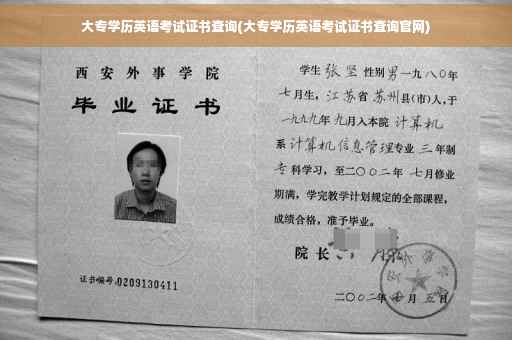 大专学历英语考试证书查询(大专学历英语考试证书查询官网)
西安外事学院
毕业证书
证书编号:0209130411
学生 张坚 性别男一九八〇年
七月生，江苏省 苏州县(市)人，于
一九九九年 九月入本院 计算机
系 计算机信息管理专业 三 年制
专 科学习，至二〇〇二年 七月修业
期满，学完教学计划规定的全部课程，
成绩合格，准予毕业。
院长
二〇〇二年 月 五日